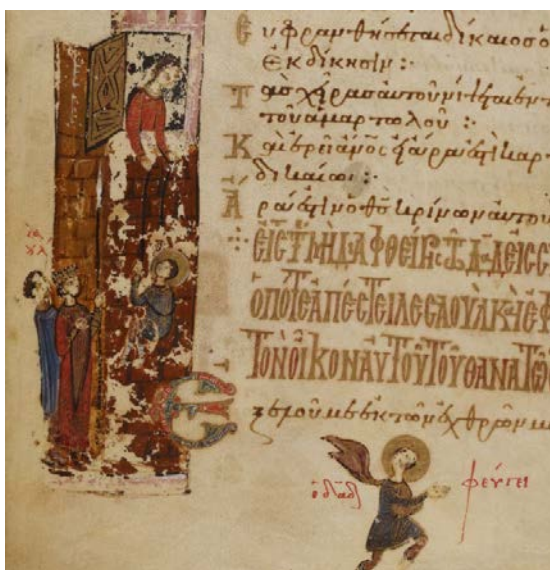 Εὐφρανθήσεται δίκαιος ὅ
ἐκδίκησιν :
Τὰς χεῖρας αὐτοῦ νίψεται ἐν τ
τοῦ ἁμαρτωλοῦ :
Καὶ ἐρεῖ ἄνος εἰ ἄρα ἐστὶ καρ
δικαίω :
Ἄρα ἐστὶν ὁ θς κρίνων αὐτου
ΕΙС Τ ΜΗ ΔΙΑΦΘΕΙΡΗС ΤΩ ΔΑΔ ΕΙС С
ΟΠΟΤΕ ΑΠΕСΤΕΙΛΕ СΑΟΥΛ Κ ΕΦ
ΤΟΝ ΟΙΚΟΝ ΑΥΤΟΥ ΤΟΥ ΘΑΝΑΤΩ
Ἐξελοῦ με ἐκ τῶν ἐχθρῶν μ
ὁ δαδ φεύγει